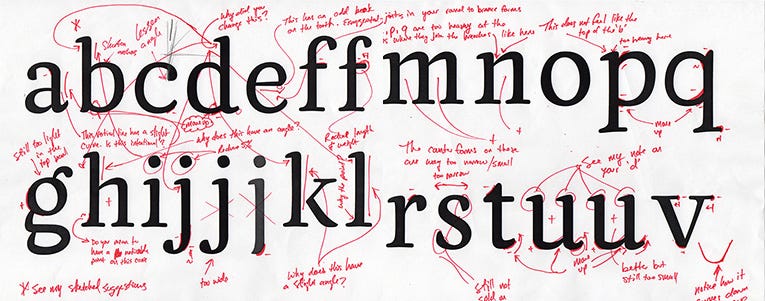 *
Shorten
Lessen
angle
Why did you
change this?
This has an odd break
on the tooth. Exaggerate joints in your
P, Q are too heavy at the
is where they join the branches like here
This does not feel like the
top of the 'b'
too heavy here
abcdeffmnopq
move
up
Still too light
in the
top
This vertical line has a slight
curve. Is this intentional?
Why does this have an angle?
Reduce
Reduce length
& weight
The counter forms on these
are way too narrow/small
too narrow
See my note on
your 'd'
ghijjjklrstuuuv
Do you mean to
have a noticeable
point on this curve
too wide
Why does this have
a slight angle?
Still not
sold on
move
up
better but
still too small
notice how it
down
* See my sketched suggestions